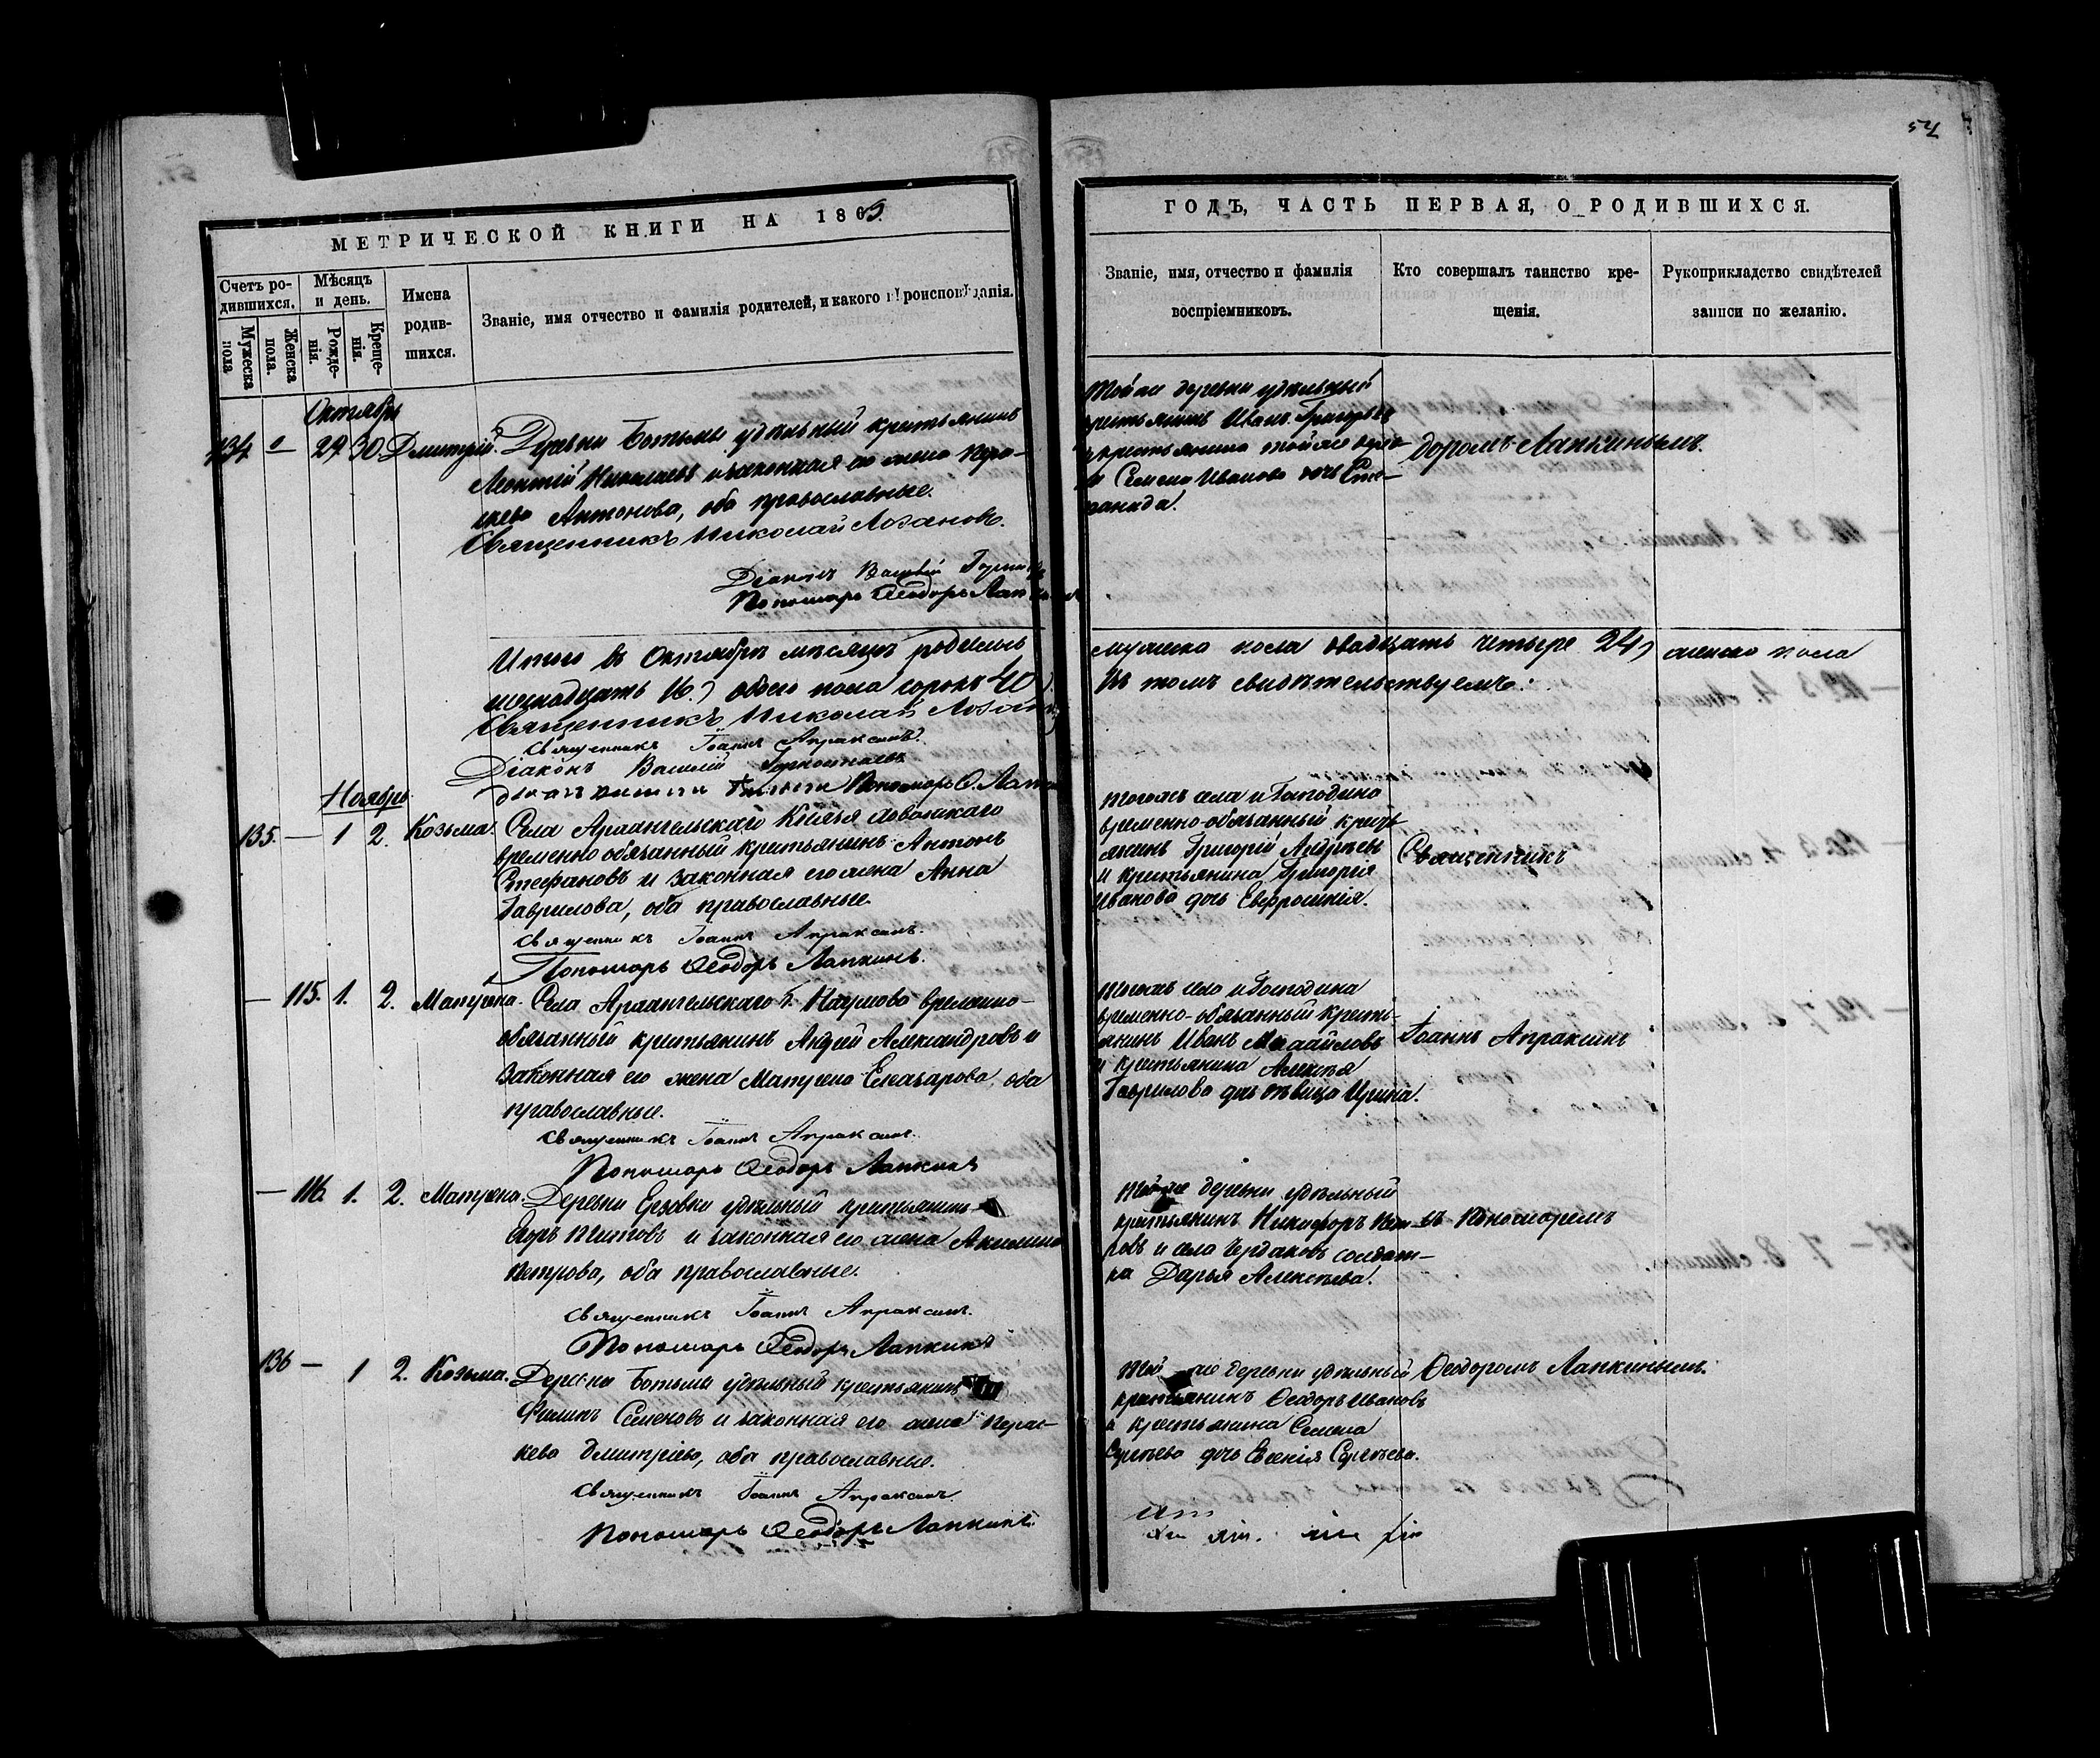 54
МЕТРИЧЕСКОЙ КНИГИ НА 1865
ГОДЪ, ЧАСТЬ ПЕРВАЯ, О РОДИВШИХСЯ.
Счетъ ро-
дившихся.
Мужеска
пола
Женска
пола.
Мѣсяцъ
и день.
Рожде-
нія.
Креще-
нія.
Имена
родив-
шихся.
Званіе, имя отчество и фамилія родителей, и какого
Званіе, имя, отчество и фамилія
воспріемниковъ.
Кто совершалъ таинство кре-
щенія.
Рукоприкладство свидѣтелей
записи по желанію.
Октябрь
134 29 30 Дмитрій. Деревни Ботьмы удѣльный крестьянинъ
Леонтій Николаевъ и законная его жена Пара-
скева Антонова, оба православные.
Священникъ Николай Лозановъ.
Діаконъ Василій
Пономарь Ѳеодоръ
Той же деревни удѣльный
крестьянинъ Иванъ Григорьевъ
и крестьянина той же дерев-
ни Семена Иванова дочь
доромъ Лапкинымъ.
Итого въ Октябрѣ мѣсяцѣ родилось
мужеска пола двадцать четыре 24, женска пола
шестнадцать 16.) обоего пола сорокъ 40).
Въ томъ свидѣтельствуемъ:
Священникъ Николай
Священникъ Іоаннъ Апраксинъ.
Діаконъ Василій
Пономарь Ѳ.
Ноябрь
135. — 1 2. Козьма. Села Архангельскаго Князя
временно обязанный крестьянинъ Антонъ
Стефановъ и законная его жена Анна
Гаврилова, оба православные.
Священникъ Іоаннъ Апраксинъ.
Пономарь Ѳеодоръ Лапкинъ.
Тогожъ села и Господина
временно-обязанный кресть-
янинъ Григорій Андреевъ
и крестьянина Григорія
Иванова дочь Евфросинія.
Священникъ
— 115. 1. 2. Матрена. Села Архангельскаго Г. Наумова временно-
обязанный крестьянинъ Андрей Александровъ и
законная его жена Матрена Елеазарова, оба
православные.
Священникъ Іоаннъ Апраксинъ.
Пономарь Ѳеодоръ Лапкинъ
Тогожъ села и Господина
временно-обязанный кресть-
янинъ Иванъ Михайловъ
и крестьянина Алексѣя
Гаврилова дочь дѣвица Ирина.
Іоаннъ Апраксинъ
— 116. 1. 2. Матрена. Деревни Ерзовки удѣльный крестьянинъ
Егоръ Титовъ и законная его жена Акилина
Петрова, оба православные.
Священникъ Іоаннъ Апраксинъ.
Пономарь Ѳеодоръ Лапкинъ
Той же деревни удѣльный
крестьянинъ Никифоръ Пет-
ровъ и села Чердаковъ солдат-
ка Дарья Алексѣева.
съ Пономаремъ
136 — 1 2. Козьма. Деревни Ботьмы удѣльный крестьянинъ
Филипъ Семеновъ и законная его жена Парас-
кева Дмитріева, оба православные.
Священникъ Іоаннъ Апраксинъ.
Пономарь Ѳеодоръ Лапкинъ.
Той же деревни удѣльный
крестьянинъ Ѳеодоръ Ивановъ
и крестьянина Семена
Сергѣева дочь Евгенія Сергѣева.
Ѳеодоромъ Лапкинымъ.